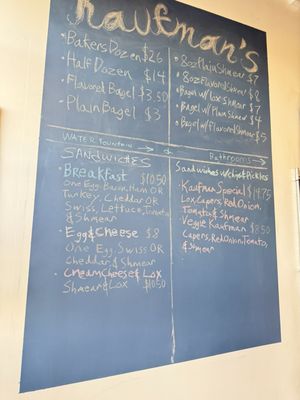 Kaufman's
Bakers Dozen $26
Half Dozen $14
Flavored Bagel $3.50
Plain Bagel $3
8oz Plain Shmear $7
8oz Flavored Shmear $8
Bagel w/ Lox Shmear $7
Bagel w/ Plain Shmear $4
Bagel w/ Flavored Shmear $5
Water Fountain → & Bathrooms →
Sandwiches
Breakfast $10.50
One Egg, Bacon, Ham OR
Turkey, Cheddar OR
Swiss, Lettuce, Tomato
& Shmear
Egg & Cheese $8
One Egg, Swiss OR
Cheddar & Shmear
Cream Cheese & Lox
Shmear & Lox $10.50
Sandwiches w/ chips & Pickles
Kaufman Special $14.75
Lox, Capers, Red Onion,
Tomato & Shmear
Veggie Kaufman $8.50
Capers, Red Onion, Tomato
& Shmear